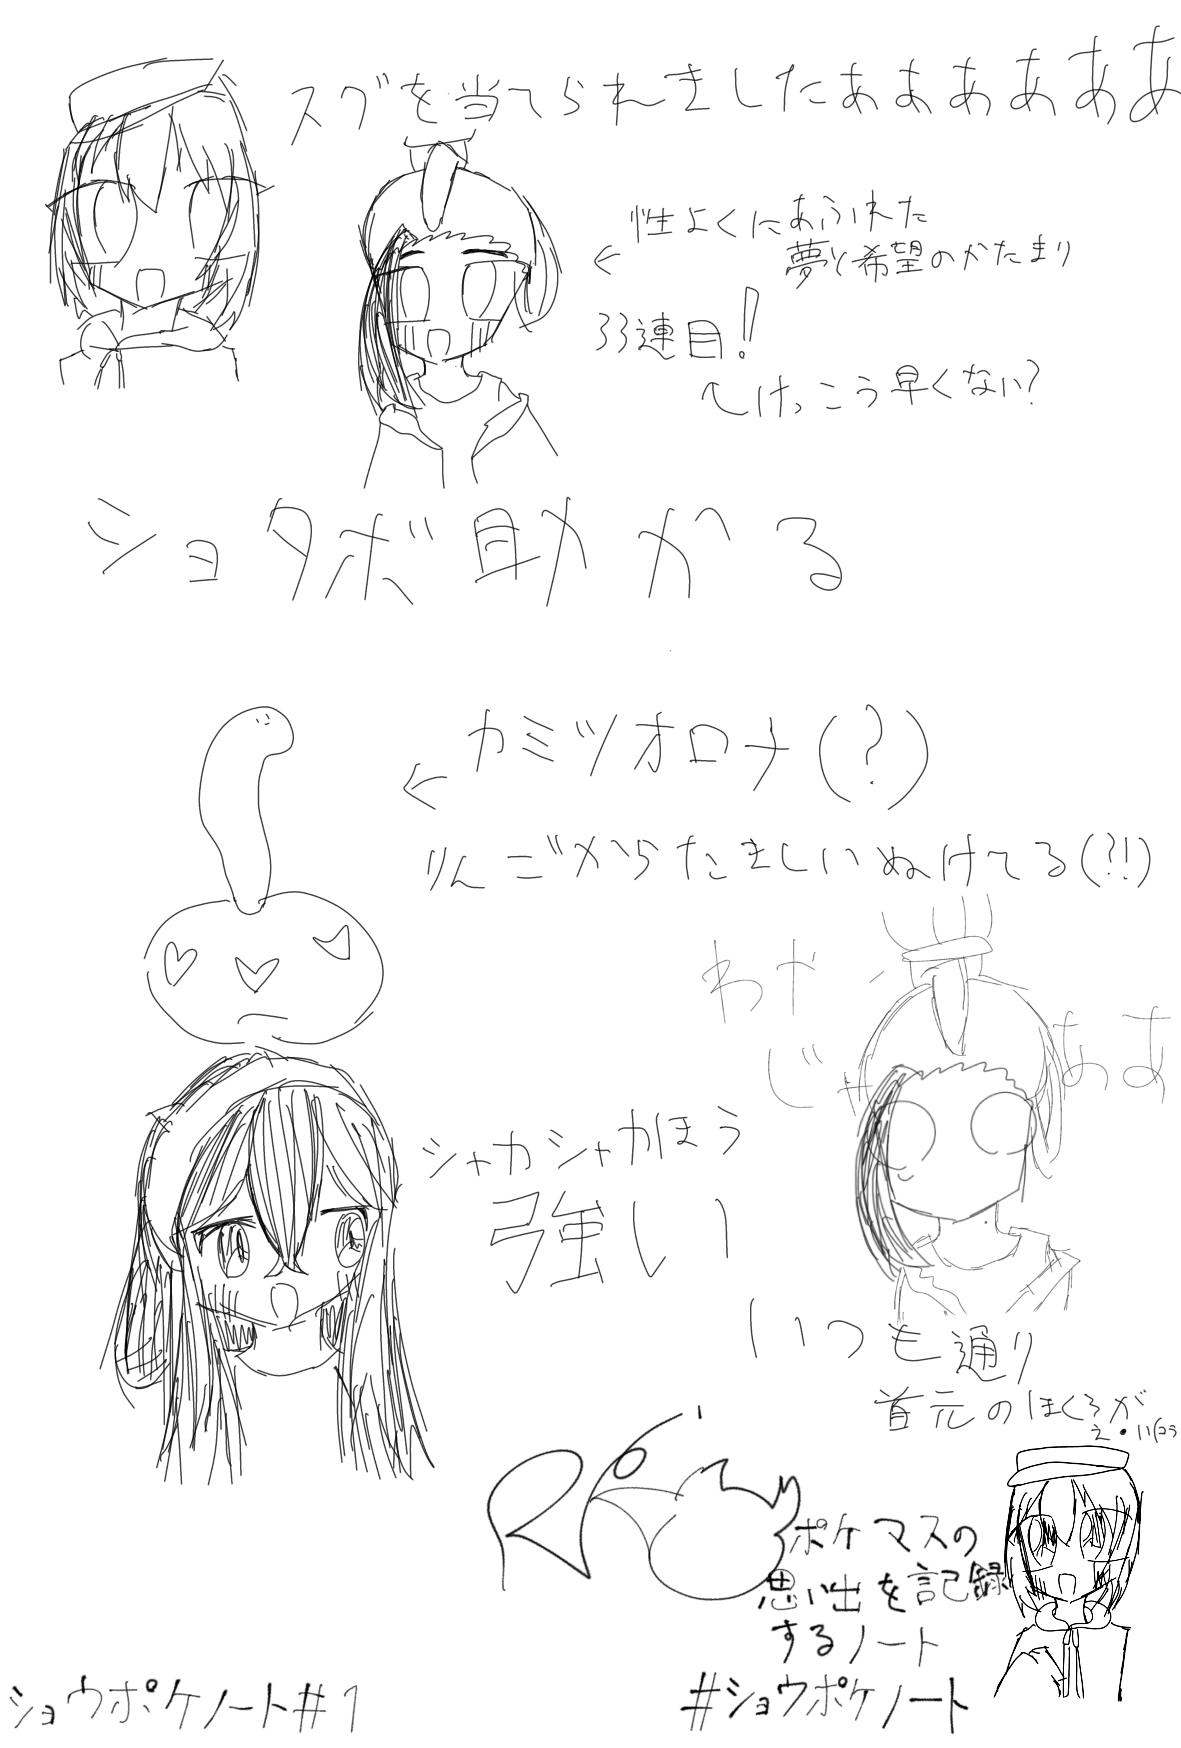 スグを当てられましたぁぁぁぁああ
性よくにあふれた
夢と希望のかたまり
←
33連目!
けっこう早くない?
ショタボ助かる
← カミツオロチ(?)
りんごからたましいぬけてる(?!)
わや
じゃ
ああ
シャカシャカほう
強い
いつも通り
首元のほくろが
ポケマスの
思い出を記録
するノート
#ショウポケノート
ショウポケノート#1